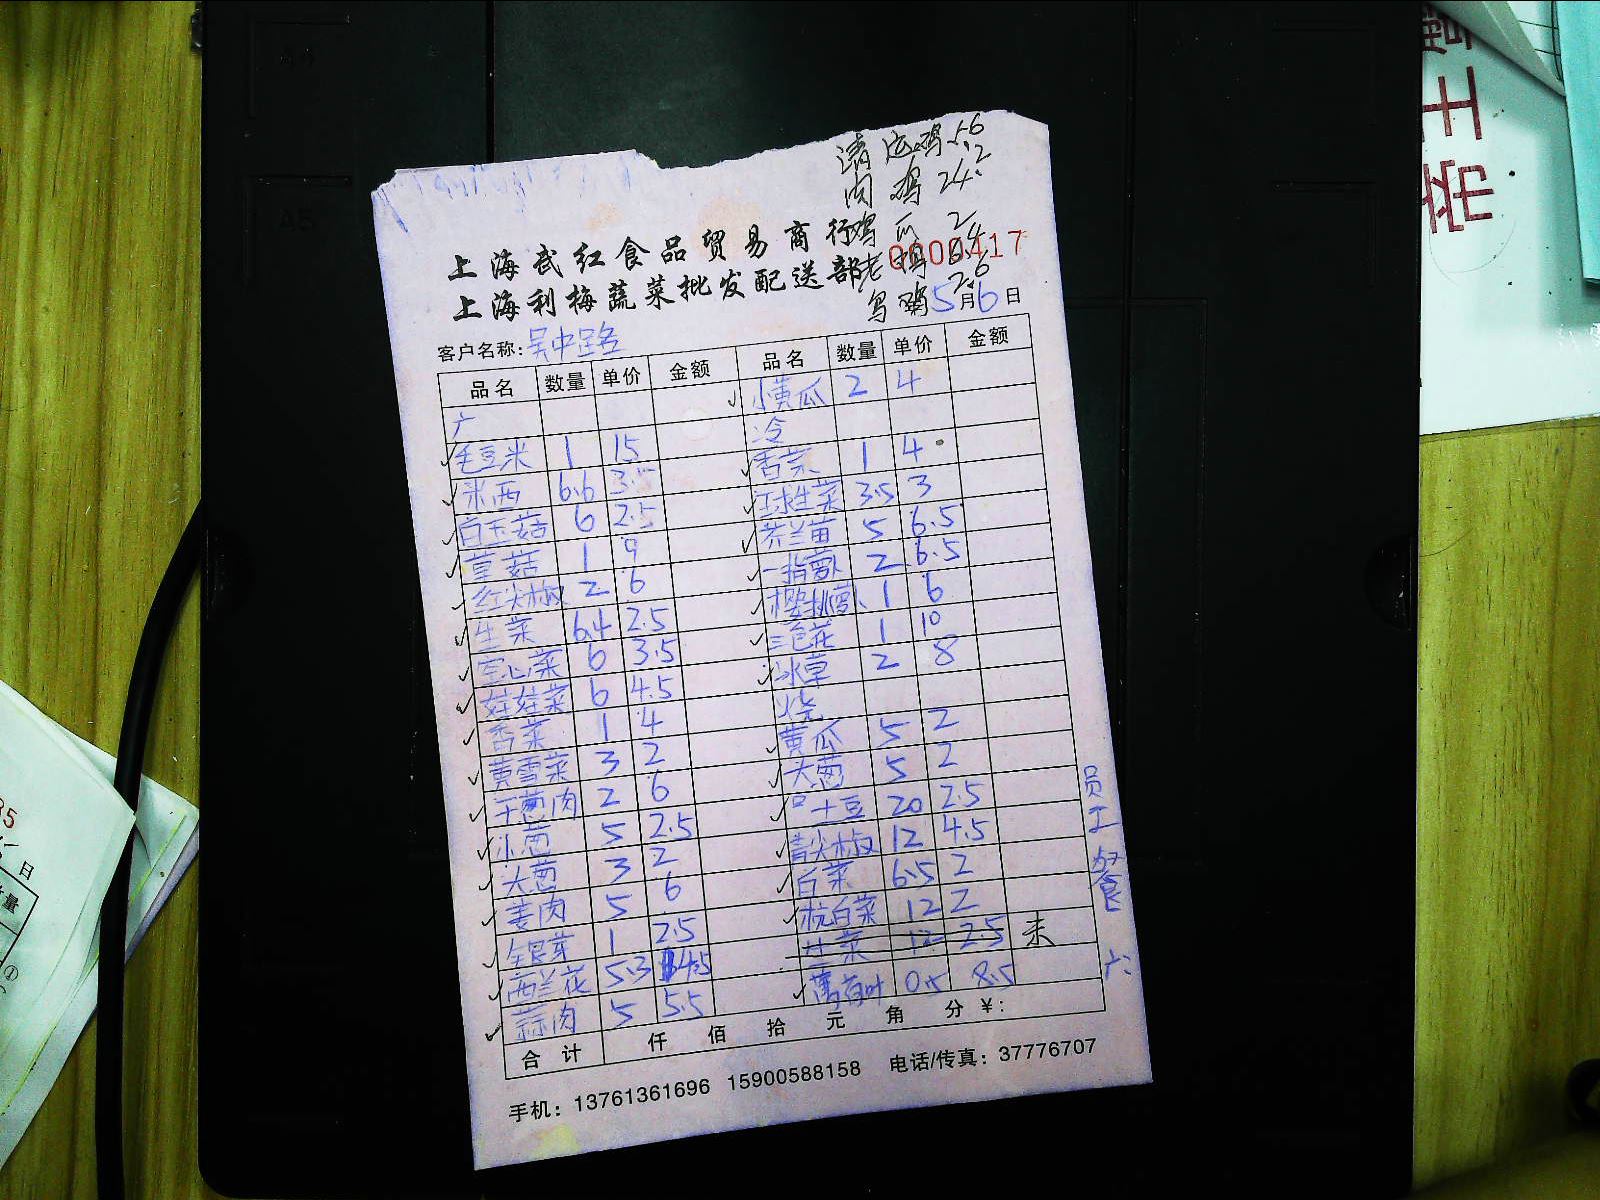 清远鸡 5.6
肉鸡 24.2
鸡爪 2
老鸡 6.4
乌鸡 2.6
0000417
上海武红食品贸易商行
上海利梅蔬菜批发配送部
5月6日
客户名称:吴中路
品名 数量 单价 金额 品名 数量 单价 金额
广 小黄瓜 2 4
毛豆米 1 15 冷
米西 6.6 3.5 香菜 1 4
白玉菇 6 2.5 球生菜 3.5 3
草菇 1 9 芥兰苗 5 6.5
红尖椒 2 6 一指萝卜 2 6.5
生菜 6.4 2.5 樱桃萝卜 1 6
空心菜 6 3.5 三色花 1 10
娃娃菜 6 4.5 冰草 2 8
香菜 1 4 烧
黄雪菜 3 2 黄瓜 5 2
干葱肉 2 6 大葱 5 2
小葱 5 2.5 土豆 20 2.5
大葱 3 2 青尖椒 12 4.5
姜肉 5 6 白菜 6.5 2
银芽 1 2.5 杭白菜 12 2
西兰花 5.3 4.5 菜 12 2.5 未
蒜肉 5 5.5 薄荷叶 0.5 8.5
合计 仟 佰 拾 元 角 分 ¥:
手机: 13761361696 15900588158 电话/传真: 37776707
员工餐
广
A5
帝王
日